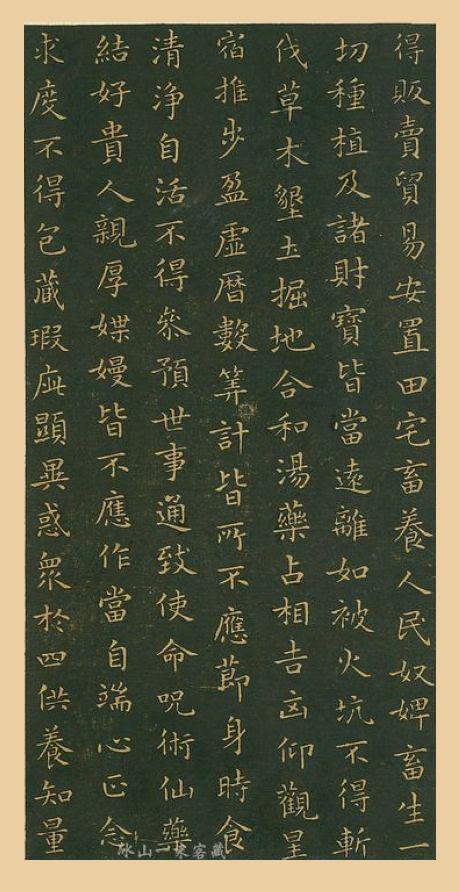 得販賣貿易安置田宅畜養人民奴婢畜生一
切種植及諸財寶皆當遠離如被火坑不得斬
伐草木墾土掘地合和湯藥占相吉凶仰觀星
宿推步盈虛曆數筭計皆所不應節身時食
清淨自活不得叅預世事通致使命呪術仙藥
結好貴人親厚媟嫚皆不應作當自端心正念
求度不得包藏瑕疵顯異惑眾於四供養知量
冰山一束客藏